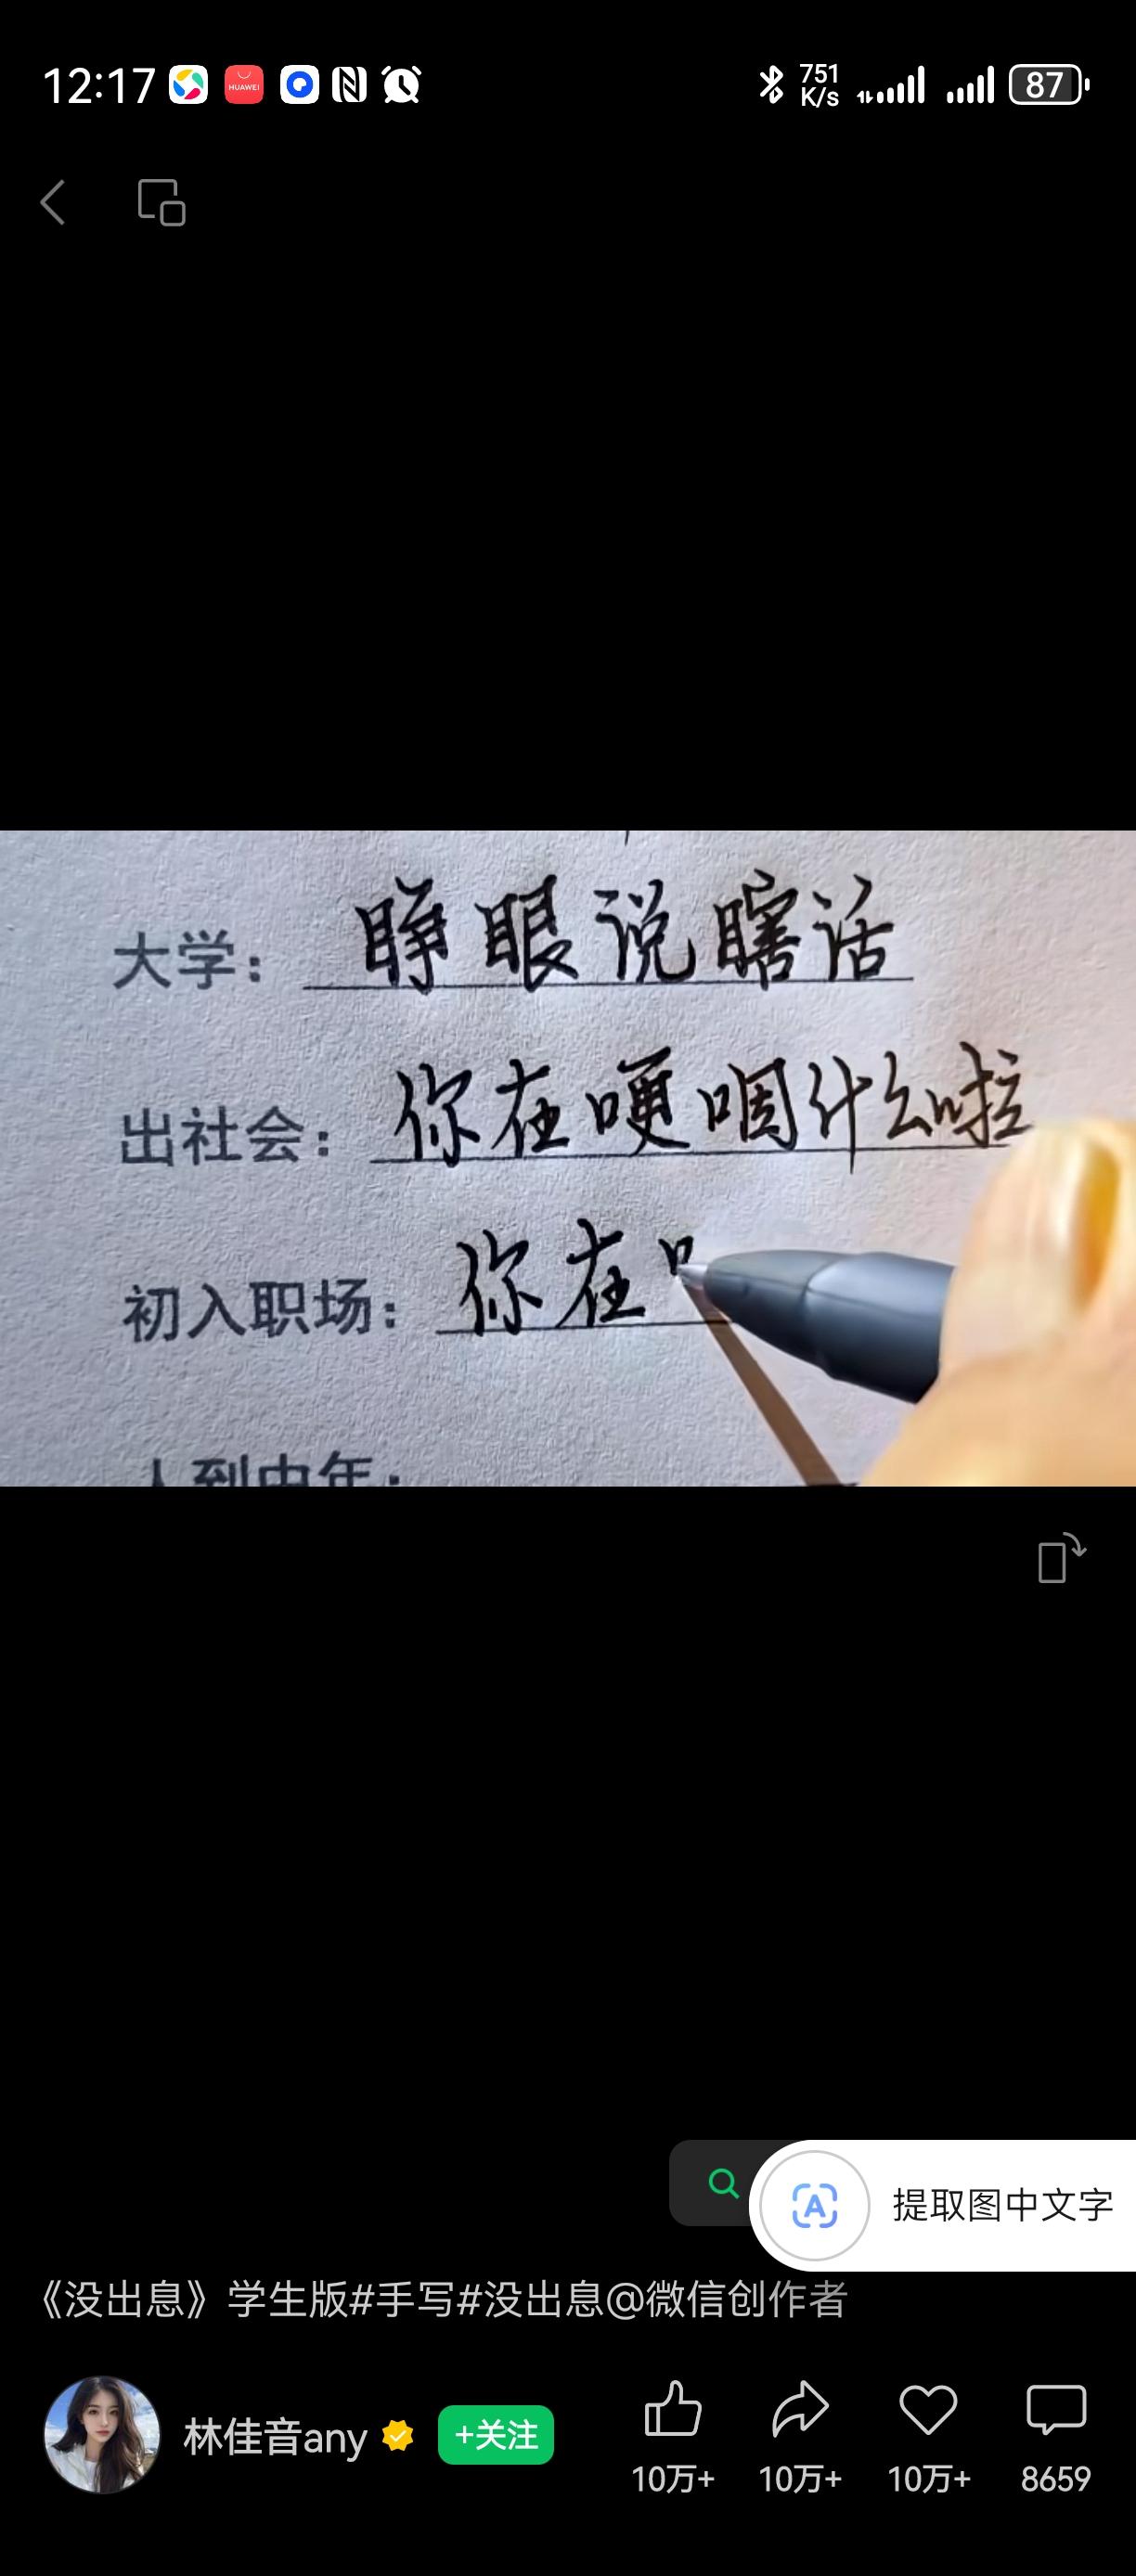 12:17
HUAWEI
751
K/s
87
大学：睁眼说瞎话
出社会：你在哽咽什么啦
初入职场：你在
人到中年：
提取图中文字
《没出息》学生版#手写#没出息@微信创作者
林佳音any
+关注
10万+
10万+
10万+
8659